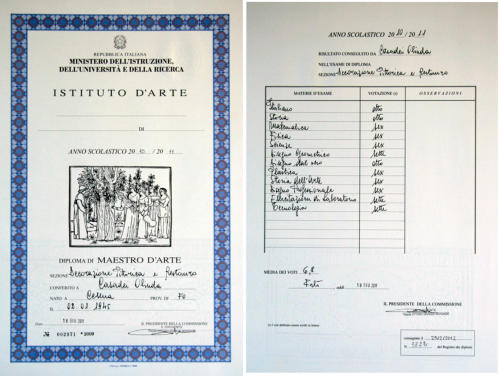 REPUBBLICA ITALIANA
MINISTERO DELL'ISTRUZIONE,
DELL'UNIVERSITÀ E DELLA RICERCA
ISTITUTO D'ARTE
DI
ANNO SCOLASTICO 2010 / 2011
DIPLOMA DI MAESTRO D'ARTE
SEZIONE Decorazione Pittorica e Restauro
CONFERITO A Casadei
NATO A Cesena PROV. DI FO
IL
IL PRESIDENTE DELLA COMMISSIONE
N. 002971 * 2009
ANNO SCOLASTICO 2010 / 2011
RISULTATO CONSEGUITO DA Casadei
NELL'ESAME DI DIPLOMA
SEZIONE Decorazione Pittorica e Restauro
MATERIE D'ESAME VOTAZIONE (1) OSSERVAZIONI
Italiano otto
Storia otto
Matematica sei
Fisica sei
Scienze sei
Disegno Geometrico sette
Disegno dal vero otto
Plastica sei
Storia dell'Arte sei
Disegno Professionale sei
Esercitazioni di Laboratorio sette
Tecnologia sette
MEDIA DEI VOTI
IL PRESIDENTE DELLA COMMISSIONE
consegnato il
N. del Registro dei diplomi